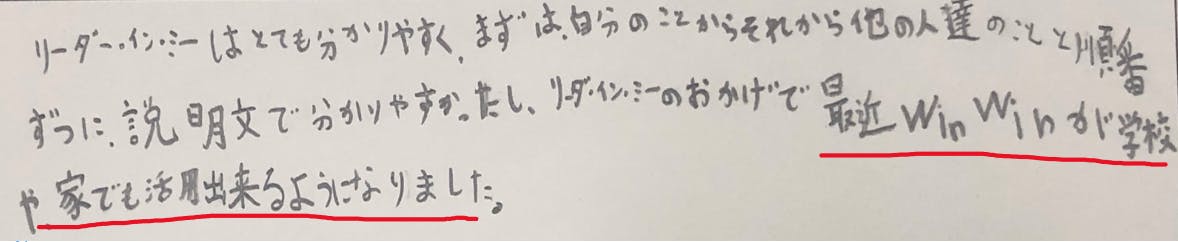 リーダー・イン・ミーはとても分かりやすく、まずは、自分のことからそれから他の人達のことと順番
ずつに、説明文で分かりやすかったし、リーダ・イン・ミーのおかげで最近WinWinが学校
や家でも活用出来るようになりました。